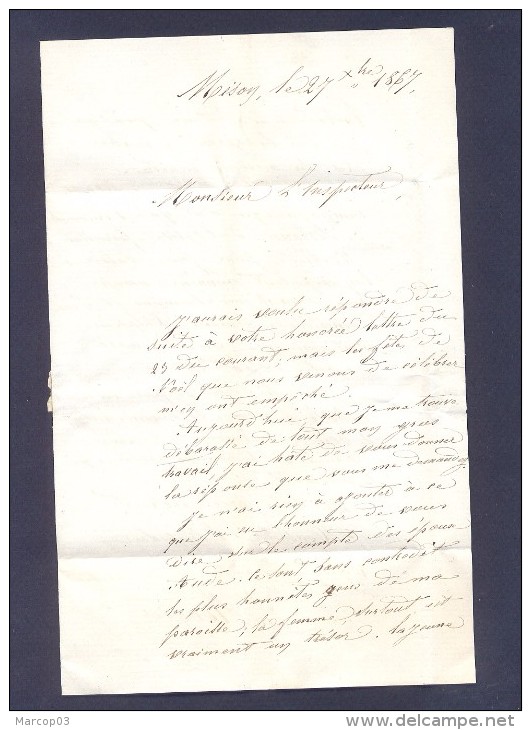 Mison, le 27 Xbre 1867,
Monsieur L'inspecteur,
J'aurais voulu répondre de
suite à votre honorée lettre du
23 du courant, mais les fêtes de
Noël que nous venons de célébrer
m'en ont empêché.
Aujourd'hui que je me trouve
débarassé de tout mon gros
travail, j'ai hâte de vous donner
la réponse que vous me demandez.
Je n'ais rien à ajouter à ce
que j'ai eu l'honneur de vous
dire sur le compte des époux
Aude. Ce sont sans contredit
les plus honnêtes gens de ma
paroisse, la femme surtout est
vraiment un trésor. La jeune
Marcop03